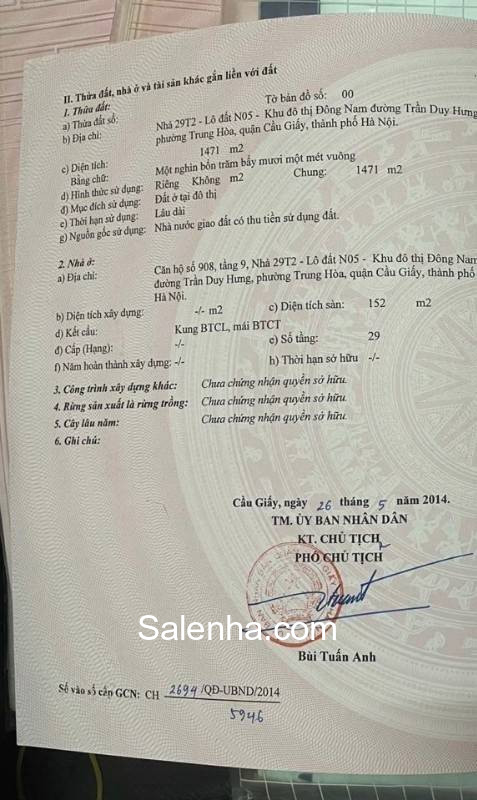 II. Thửa đất, nhà ở và tài sản khác gắn liền với đất
1. Thửa đất:
a) Thửa đất số: Tờ bản đồ số: 00
b) Địa chỉ: Nhà 29T2 - Lô đất N05 - Khu đô thị Đông Nam đường Trần Duy Hưng
phường Trung Hòa, quận Cầu Giấy, thành phố Hà Nội.
c) Diện tích: 1471 m2
Bằng chữ: Một nghìn bốn trăm bẩy mươi một mét vuông
d) Hình thức sử dụng: Riêng Không m2 Chung: 1471 m2
đ) Mục đích sử dụng: Đất ở tại đô thị
e) Thời hạn sử dụng: Lâu dài
g) Nguồn gốc sử dụng: Nhà nước giao đất có thu tiền sử dụng đất.
2. Nhà ở:
a) Địa chỉ: Căn hộ số 908, tầng 9, Nhà 29T2 - Lô đất N05 - Khu đô thị Đông Nam
đường Trần Duy Hưng, phường Trung Hòa, quận Cầu Giấy, thành phố
Hà Nội.
b) Diện tích xây dựng: -/- m2 c) Diện tích sàn: 152 m2
d) Kết cấu: Kung BTCL, mái BTCT
đ) Cấp (Hạng): -/- e) Số tầng: 29
f) Năm hoàn thành xây dựng: -/- h) Thời hạn sở hữu -/-
3. Công trình xây dựng khác: Chưa chứng nhận quyền sở hữu.
4. Rừng sản xuất là rừng trồng: Chưa chứng nhận quyền sở hữu.
5. Cây lâu năm: Chưa chứng nhận quyền sở hữu.
6. Ghi chú:
Cầu Giấy, ngày 26 tháng 5 năm 2014.
TM. ỦY BAN NHÂN DÂN
KT. CHỦ TỊCH
PHÓ CHỦ TỊCH
Salenha.com
Bùi Tuấn Anh
Số vào sổ cấp GCN: CH 2694/QĐ-UBND/2014
5946